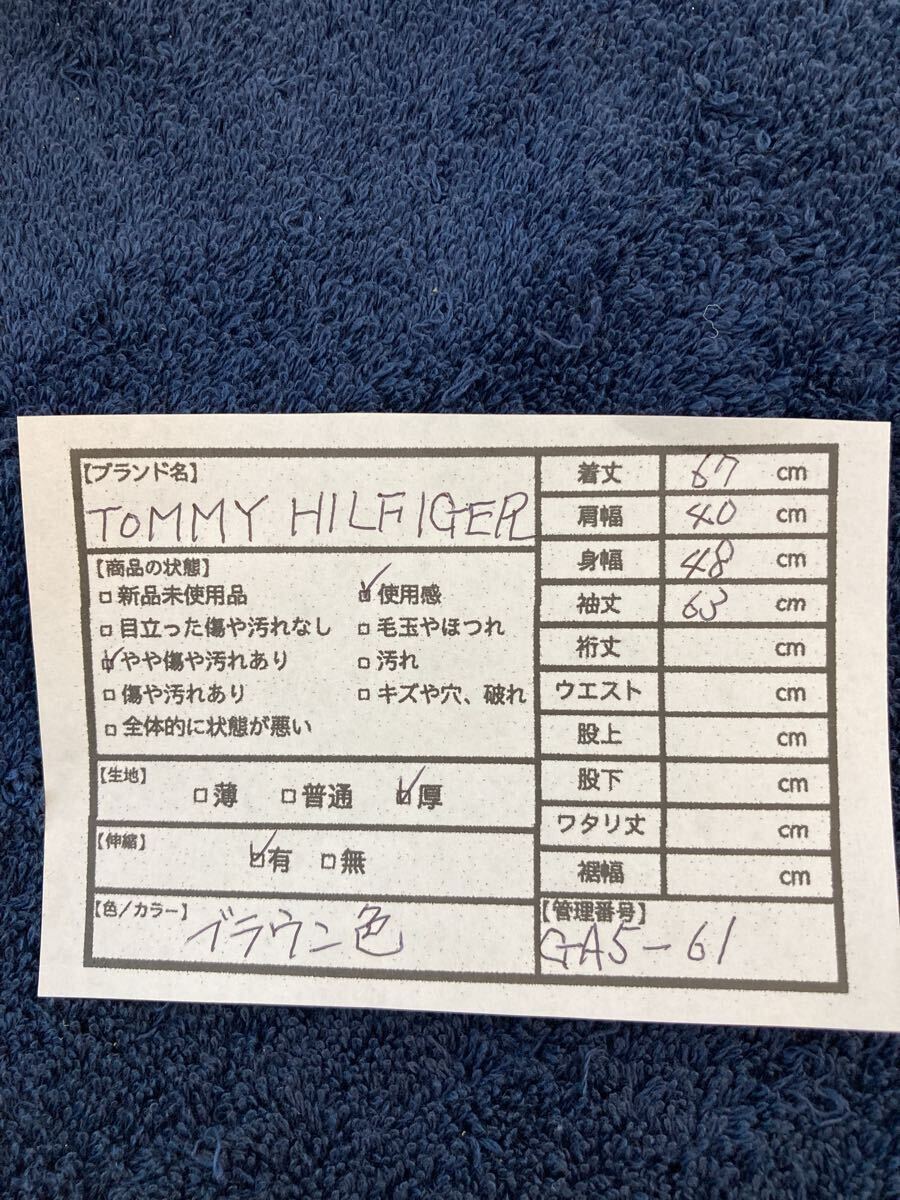 【ブランド名】
TOMMY HILFIGER
【商品の状態】
□ 新品未使用品 ☑ 使用感
□ 目立った傷や汚れなし □ 毛玉やほつれ
☑ やや傷や汚れあり □ 汚れ
□ 傷や汚れあり □ キズや穴、破れ
□ 全体的に状態が悪い
【生地】
□ 薄 □ 普通 ☑ 厚
【伸縮】
☑ 有 □ 無
【色/カラー】
ブラウン色
着丈 67 cm
肩幅 40 cm
身幅 48 cm
袖丈 63 cm
裄丈 cm
ウエスト cm
股上 cm
股下 cm
ワタリ丈 cm
裾幅 cm
【管理番号】
GA5-61